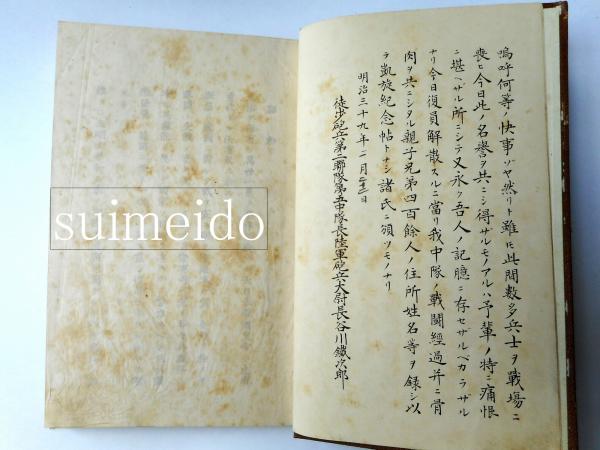 嗚呼何等ノ快事ゾヤ然リト雖ヒ此間数多兵士ヲ戰場ニ
喪ヒ今日此ノ名譽ヲ共ニシ得サルモノアルハ予輩ノ特ニ痛恨
ニ堪ヘザル所ニシテ又永ク吾人ノ記臆ニ存セザルベカラザル
ナリ今日復員解散スルニ當リ我中隊ノ戰鬪經過并ニ骨
肉ヲ共ニシタル親子兄弟四百餘人ノ住所姓名等ヲ録シ以
テ凱旋紀念帖トナシ諸氏ニ頒ツモノナリ
明治三十九年二月二十二日
徒歩砲兵第二聯隊第五中隊長陸軍砲兵大尉長谷川鐵次郎
suimeido